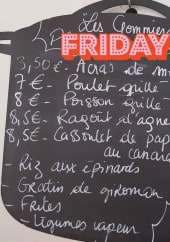 Les Gommier
FRIDAY
3,50€ - Acras de m
7€ - Poulet grillé
8€ - Poisson grillé
8,5€ - Ragoût d'agne
8,5€ - Cassoulet de pap
au cana
- Riz aux épinards
- Gratin de giromon
- Frites
- Légumes vapeur